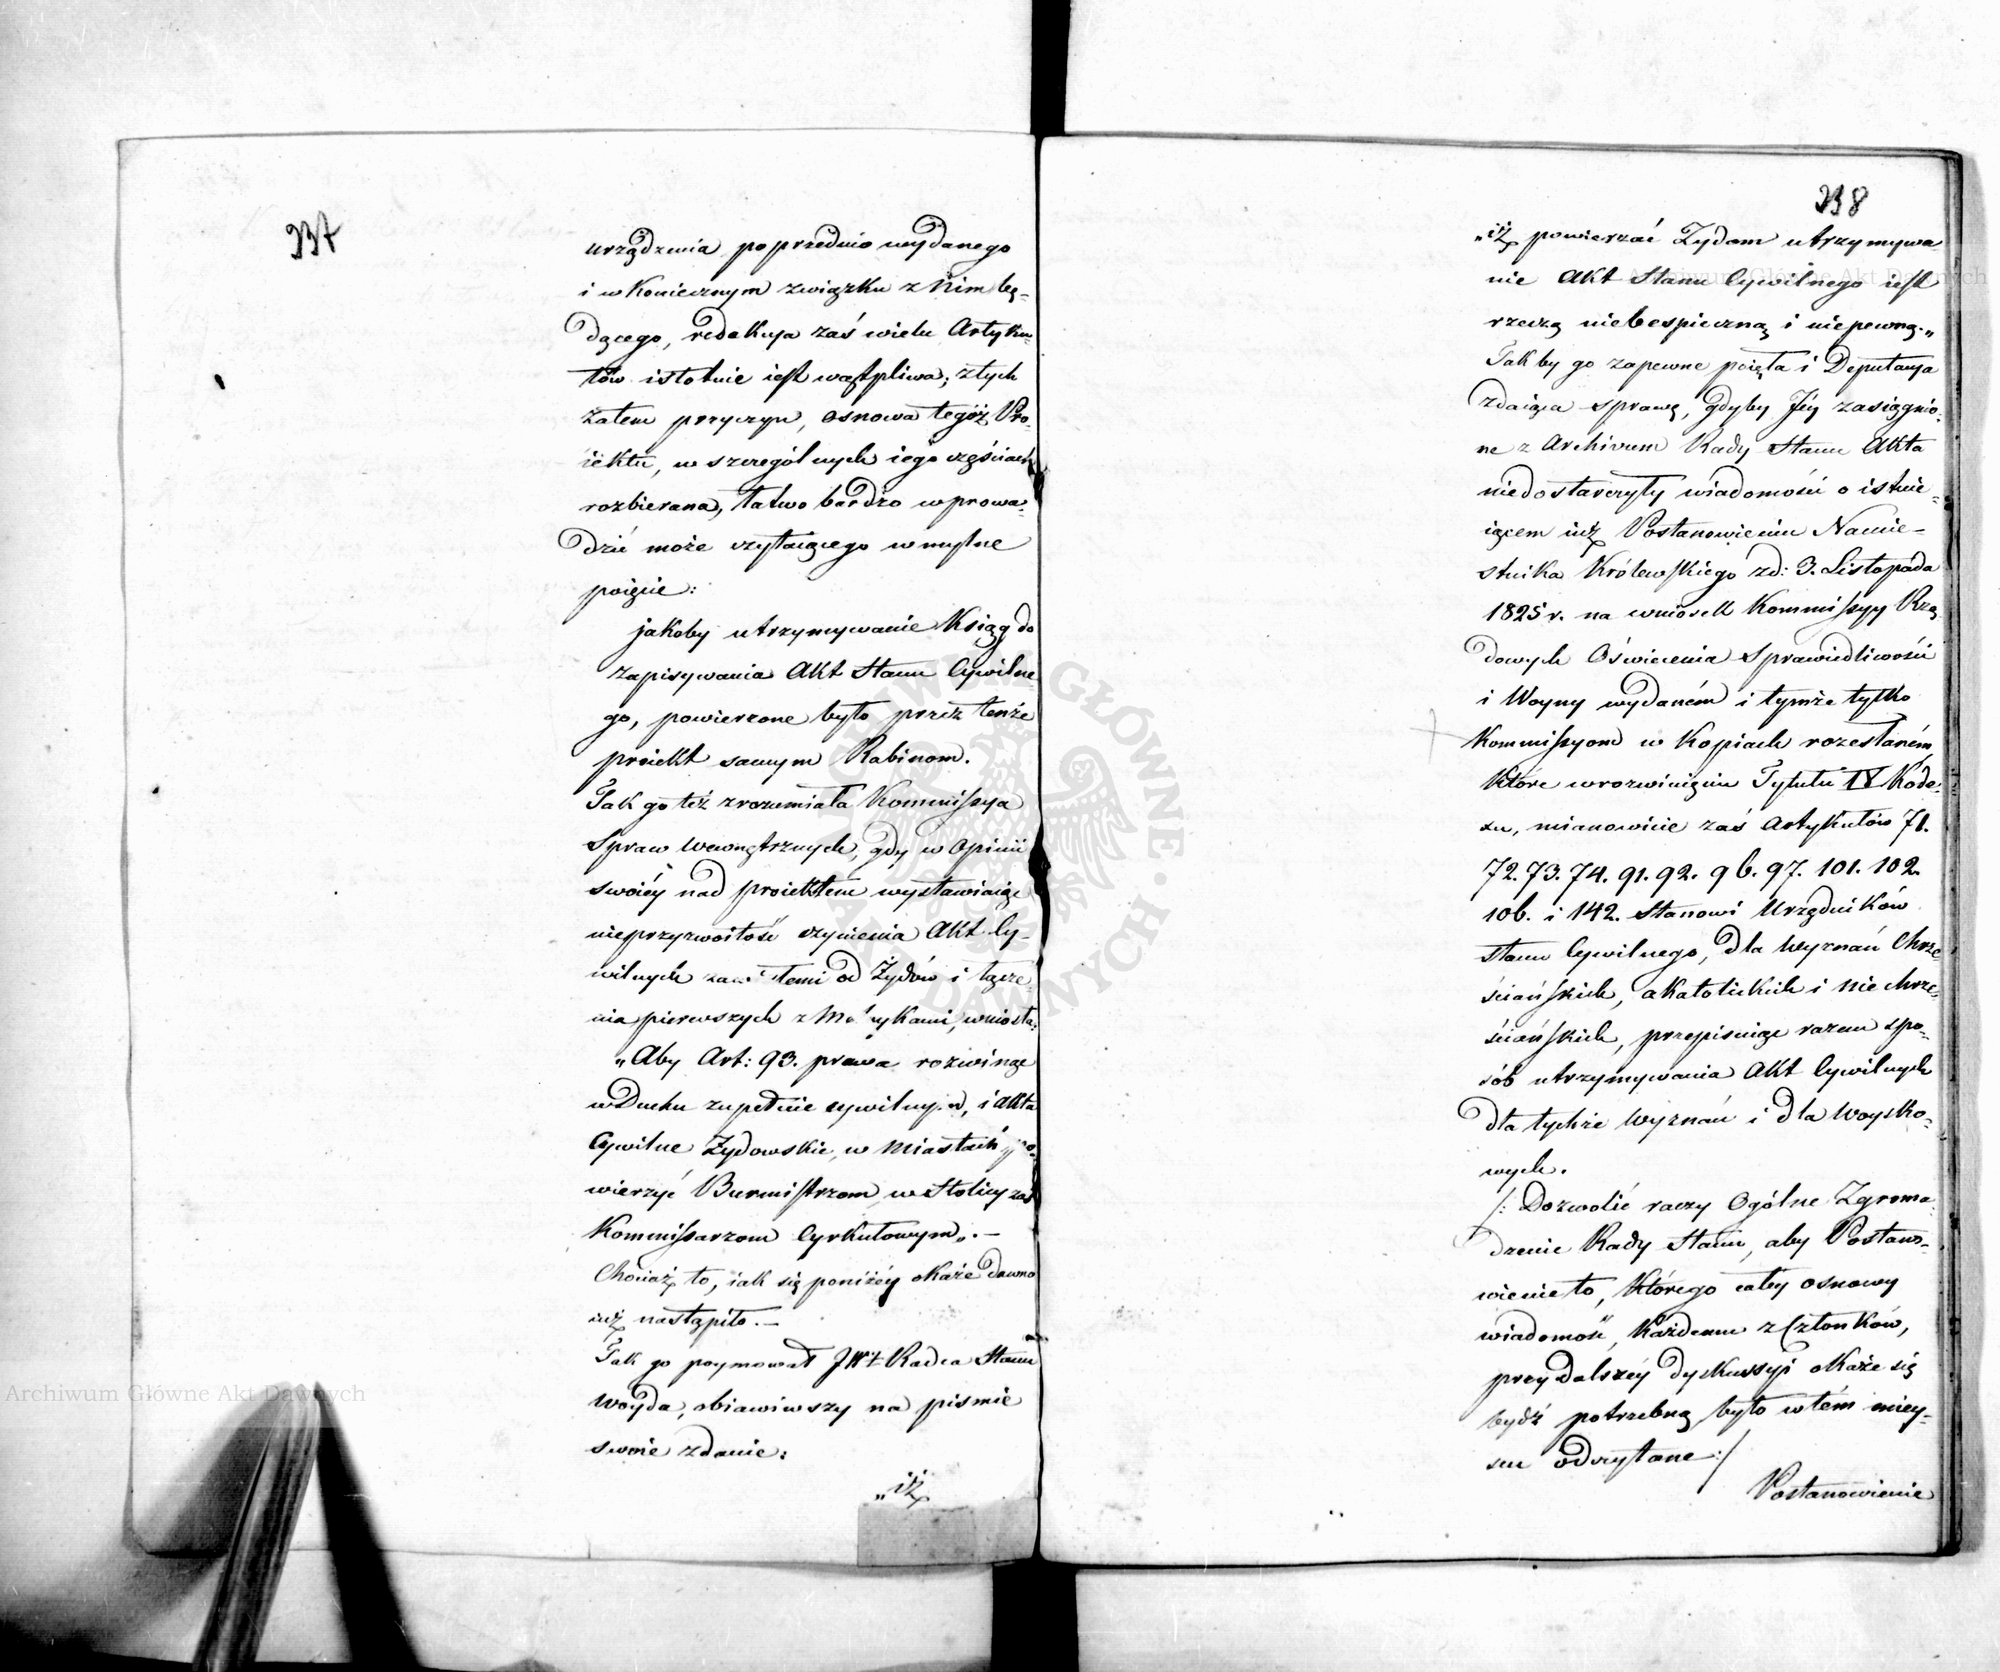 337
urządzenia poprzednio wydanego
i w koniecznym związku z Nim bę-
dącego, redakcya zaś wielu Artyku-
łów istotnie iest wątpliwa; z tych
zatem przyczyn, osnowa tegóż Pro-
iektu, w szczególnych iego częściach
rozbierana, łatwo bardzo wprowa-
dzić może czytaiącego w mylne
poięcie:
jakoby utrzymywanie Ksiąg do
zapisywania Akt Stanu Cywilne-
go, powierzone było przez tenże
proiekt samym Rabinom.
Tak go też zrozumiała Kommissya
Spraw Wewnętrznych, gdy w Opinii
swoiéy nad proiektem wystawiaiąc
nieprzyzwoitość czynienia Akt Cy-
wilnych od Żydów i łącze-
nia pierwszych z wniosła:
„Aby Art: 93. prawa rozwinąć
w Duchu zupełnie cywilnym, i Akta
Cywilne Żydowskie, w Miastach po-
wierzyć Burmistrzom, w Stolicy zaś
Kommissarzom Cyrkułowym„. —
Chociaż to, iak się poniżéy okaże dawno
iuż nastąpiło. —
Tak go poymował JW. Radca Stanu
Woyda, obiawiwszy na pismie
swoie zdanie:
„iż
338
„iż powierzać Żydom utrzymywa-
nie Akt Stanu Cywilnego iest
rzeczą niebespieczną i niepewną.„
Tak by go zapewne poięła i Deputacya
zdaiąca sprawę, gdyby Jéy zasiągnio-
ne z Archivum Rady Stanu Akta
niedostarczyły wiadomości o istnie-
iącem iuż Postanowieniu Namie-
stnika Królewskiego z d: 3. Listopada
1825 r. na wniosek Kommissyy Rzą-
dowych Oświecenia Sprawiedliwości
i Woyny wydaném i tymże tylko
Kommissyom w Kopiach rozesłaném
które w rozwinięciu Tytułu IV Kode-
xu, mianowicie zaś Artykułów 71.
72. 73. 74. 91. 92. 96. 97. 101. 102.
106. i 142. Stanowi Urzędników
Stanu Cywilnego, dla Wyznań Chrze-
ściańskich, akatolickich i nie chrze-
ściańskich, przepisuiąc razem spo-
sób utrzymywania Akt Cywilnych
dla tychże Wyznań i dla Woysko-
wych.
/: Dozwolić raczy Ogólne Zgroma-
dzenie Rady Stanu, aby Postano-
wienie to, którego całéy osnowy
wiadomość, każdemu z Członków,
przy dalszéy dyskussyi okaże się
bydź potrzebną było w tém miey-
scu odczytane :/
Postanowienie
Archiwum Główne Akt Dawnych
Archiwum Główne Akt Dawnych
ARCHIWUM GŁÓWNE AKT DAWNYCH